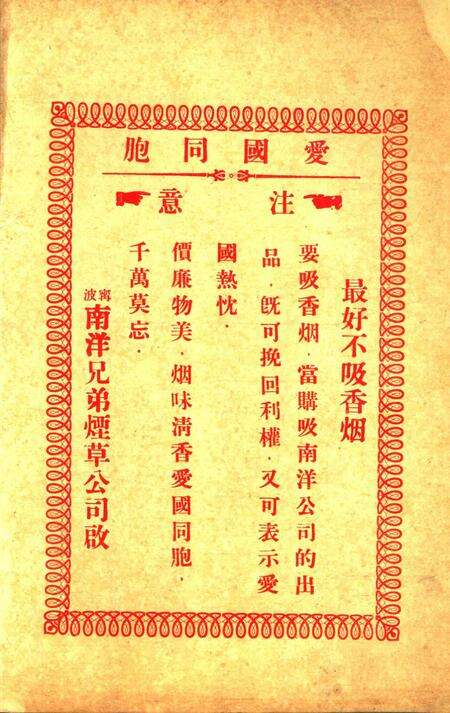 愛國同胞
注意
最好不吸香烟
要吸香烟．當購吸南洋公司的出
品．既可挽回利權．又可表示愛
國熱忱．
價廉物美．烟味清香愛國同胞．
千萬莫忘．
寗波南洋兄弟煙草公司啟